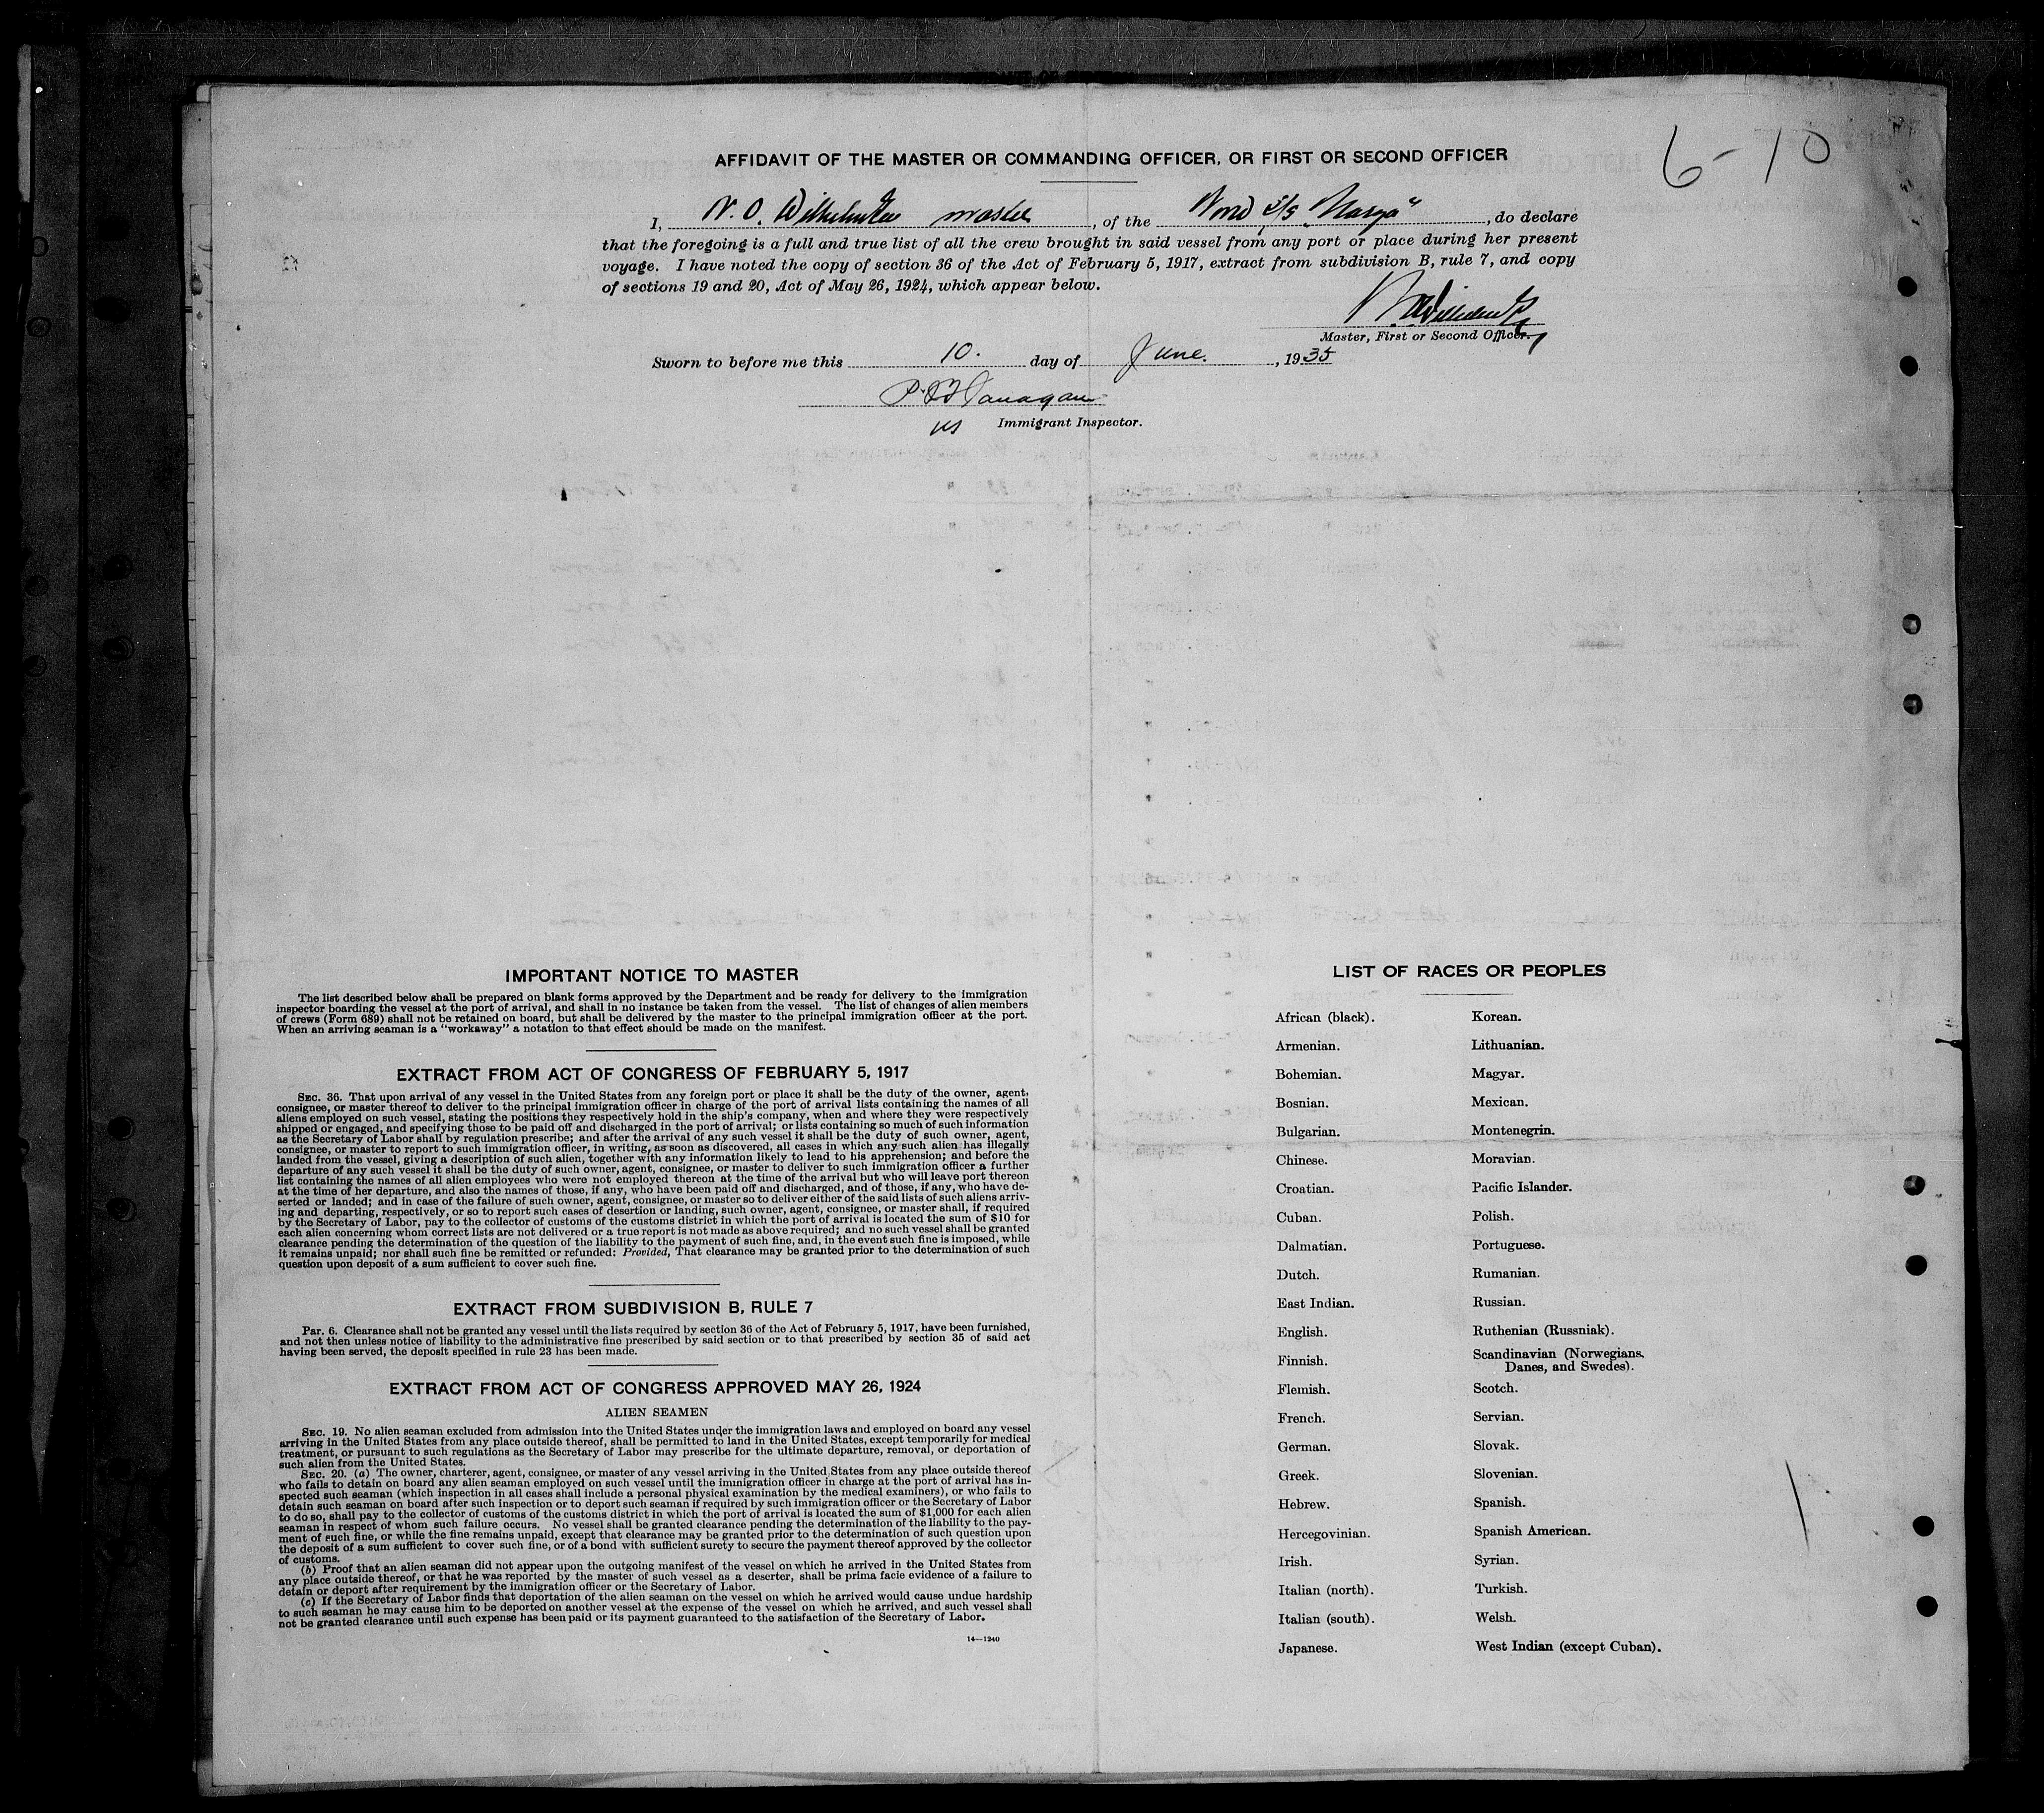 6-10
AFFIDAVIT OF THE MASTER OR COMMANDING OFFICER, OR FIRST OR SECOND OFFICER
I, N. O. master, of the s/s , do declare
that the foregoing is a full and true list of all the crew brought in said vessel from any port or place during her present
voyage. I have noted the copy of section 36 of the Act of February 5, 1917, extract from subdivision B, rule 7, and copy
of sections 19 and 20, Act of May 26, 1924, which appear below.
Master, First or Second Officer.
Sworn to before me this 10. day of June. , 1935
P. Flanagan
Immigrant Inspector.
IMPORTANT NOTICE TO MASTER
The list described below shall be prepared on blank forms approved by the Department and be ready for delivery to the immigration
inspector boarding the vessel at the port of arrival, and shall in no instance be taken from the vessel. The list of changes of alien members
of crews (Form 689) shall not be retained on board, but shall be delivered by the master to the principal immigration officer at the port.
When an arriving seaman is a "workaway" a notation to that effect should be made on the manifest.
EXTRACT FROM ACT OF CONGRESS OF FEBRUARY 5, 1917
SEC. 36. That upon arrival of any vessel in the United States from any foreign port or place it shall be the duty of the owner, agent,
consignee, or master thereof to deliver to the principal immigration officer in charge of the port of arrival lists containing the names of all
aliens employed on such vessel, stating the positions they respectively hold in the ship's company, when and where they were respectively
shipped or engaged, and specifying those to be paid off and discharged in the port of arrival; or lists containing so much of such information
as the Secretary of Labor shall by regulation prescribe; and after the arrival of any such vessel it shall be the duty of such owner, agent,
consignee, or master to report to such immigration officer, in writing, as soon as discovered, all cases in which any such alien has illegally
landed from the vessel, giving a description of such alien, together with any information likely to lead to his apprehension; and before the
departure of any such vessel it shall be the duty of such owner, agent, consignee, or master to deliver to such immigration officer a further
list containing the names of all alien employees who were not employed thereon at the time of the arrival but who will leave port thereon
at the time of her departure, and also the names of those, if any, who have been paid off and discharged, and of those, if any, who have de-
serted or landed; and in case of the failure of such owner, agent, consignee, or master so to deliver either of the said lists of such aliens arriv-
ing and departing, respectively, or so to report such cases of desertion or landing, such owner, agent, consignee, or master shall, if required
by the Secretary of Labor, pay to the collector of customs of the customs district in which the port of arrival is located the sum of $10 for
each alien concerning whom correct lists are not delivered or a true report is not made as above required; and no such vessel shall be granted
clearance pending the determination of the question of the liability to the payment of such fine, and, in the event such fine is imposed, while
it remains unpaid; nor shall such fine be remitted or refunded: Provided, That clearance may be granted prior to the determination of such
question upon deposit of a sum sufficient to cover such fine.
EXTRACT FROM SUBDIVISION B, RULE 7
Par. 6. Clearance shall not be granted any vessel until the lists required by section 36 of the Act of February 5, 1917, have been furnished,
and not then unless notice of liability to the administrative fine prescribed by said section or to that prescribed by section 35 of said act
having been served, the deposit specified in rule 23 has been made.
EXTRACT FROM ACT OF CONGRESS APPROVED MAY 26, 1924
ALIEN SEAMEN
SEC. 19. No alien seaman excluded from admission into the United States under the immigration laws and employed on board any vessel
arriving in the United States from any place outside thereof, shall be permitted to land in the United States, except temporarily for medical
treatment, or pursuant to such regulations as the Secretary of Labor may prescribe for the ultimate departure, removal, or deportation of
such alien from the United States.
SEC. 20. (a) The owner, charterer, agent, consignee, or master of any vessel arriving in the United States from any place outside thereof
who fails to detain on board any alien seaman employed on such vessel until the immigration officer in charge at the port of arrival has in-
spected such seaman (which inspection in all cases shall include a personal physical examination by the medical examiners), or who fails to
detain such seaman on board after such inspection or to deport such seaman if required by such immigration officer or the Secretary of Labor
to do so, shall pay to the collector of customs of the customs district in which the port of arrival is located the sum of $1,000 for each alien
seaman in respect of whom such failure occurs. No vessel shall be granted clearance pending the determination of the liability to the pay-
ment of such fine, or while the fine remains unpaid, except that clearance may be granted prior to the determination of such question upon
the deposit of a sum sufficient to cover such fine, or of a bond with sufficient surety to secure the payment thereof approved by the collector
of customs.
(b) Proof that an alien seaman did not appear upon the outgoing manifest of the vessel on which he arrived in the United States from
any place outside thereof, or that he was reported by the master of such vessel as a deserter, shall be prima facie evidence of a failure to
detain or deport after requirement by the immigration officer or the Secretary of Labor.
(c) If the Secretary of Labor finds that deportation of the alien seaman on the vessel on which he arrived would cause undue hardship
to such seaman he may cause him to be deported on another vessel at the expense of the vessel on which he arrived, and such vessel shall
not be granted clearance until such expense has been paid or its payment guaranteed to the satisfaction of the Secretary of Labor.
14—1240
LIST OF RACES OR PEOPLES
African (black). Korean.
Armenian. Lithuanian.
Bohemian. Magyar.
Bosnian. Mexican.
Bulgarian. Montenegrin.
Chinese. Moravian.
Croatian. Pacific Islander.
Cuban. Polish.
Dalmatian. Portuguese.
Dutch. Rumanian.
East Indian. Russian.
English. Ruthenian (Russniak).
Finnish. Scandinavian (Norwegians,
Danes, and Swedes).
Flemish. Scotch.
French. Servian.
German. Slovak.
Greek. Slovenian.
Hebrew. Spanish.
Hercegovinian. Spanish American.
Irish. Syrian.
Italian (north). Turkish.
Italian (south). Welsh.
Japanese. West Indian (except Cuban).